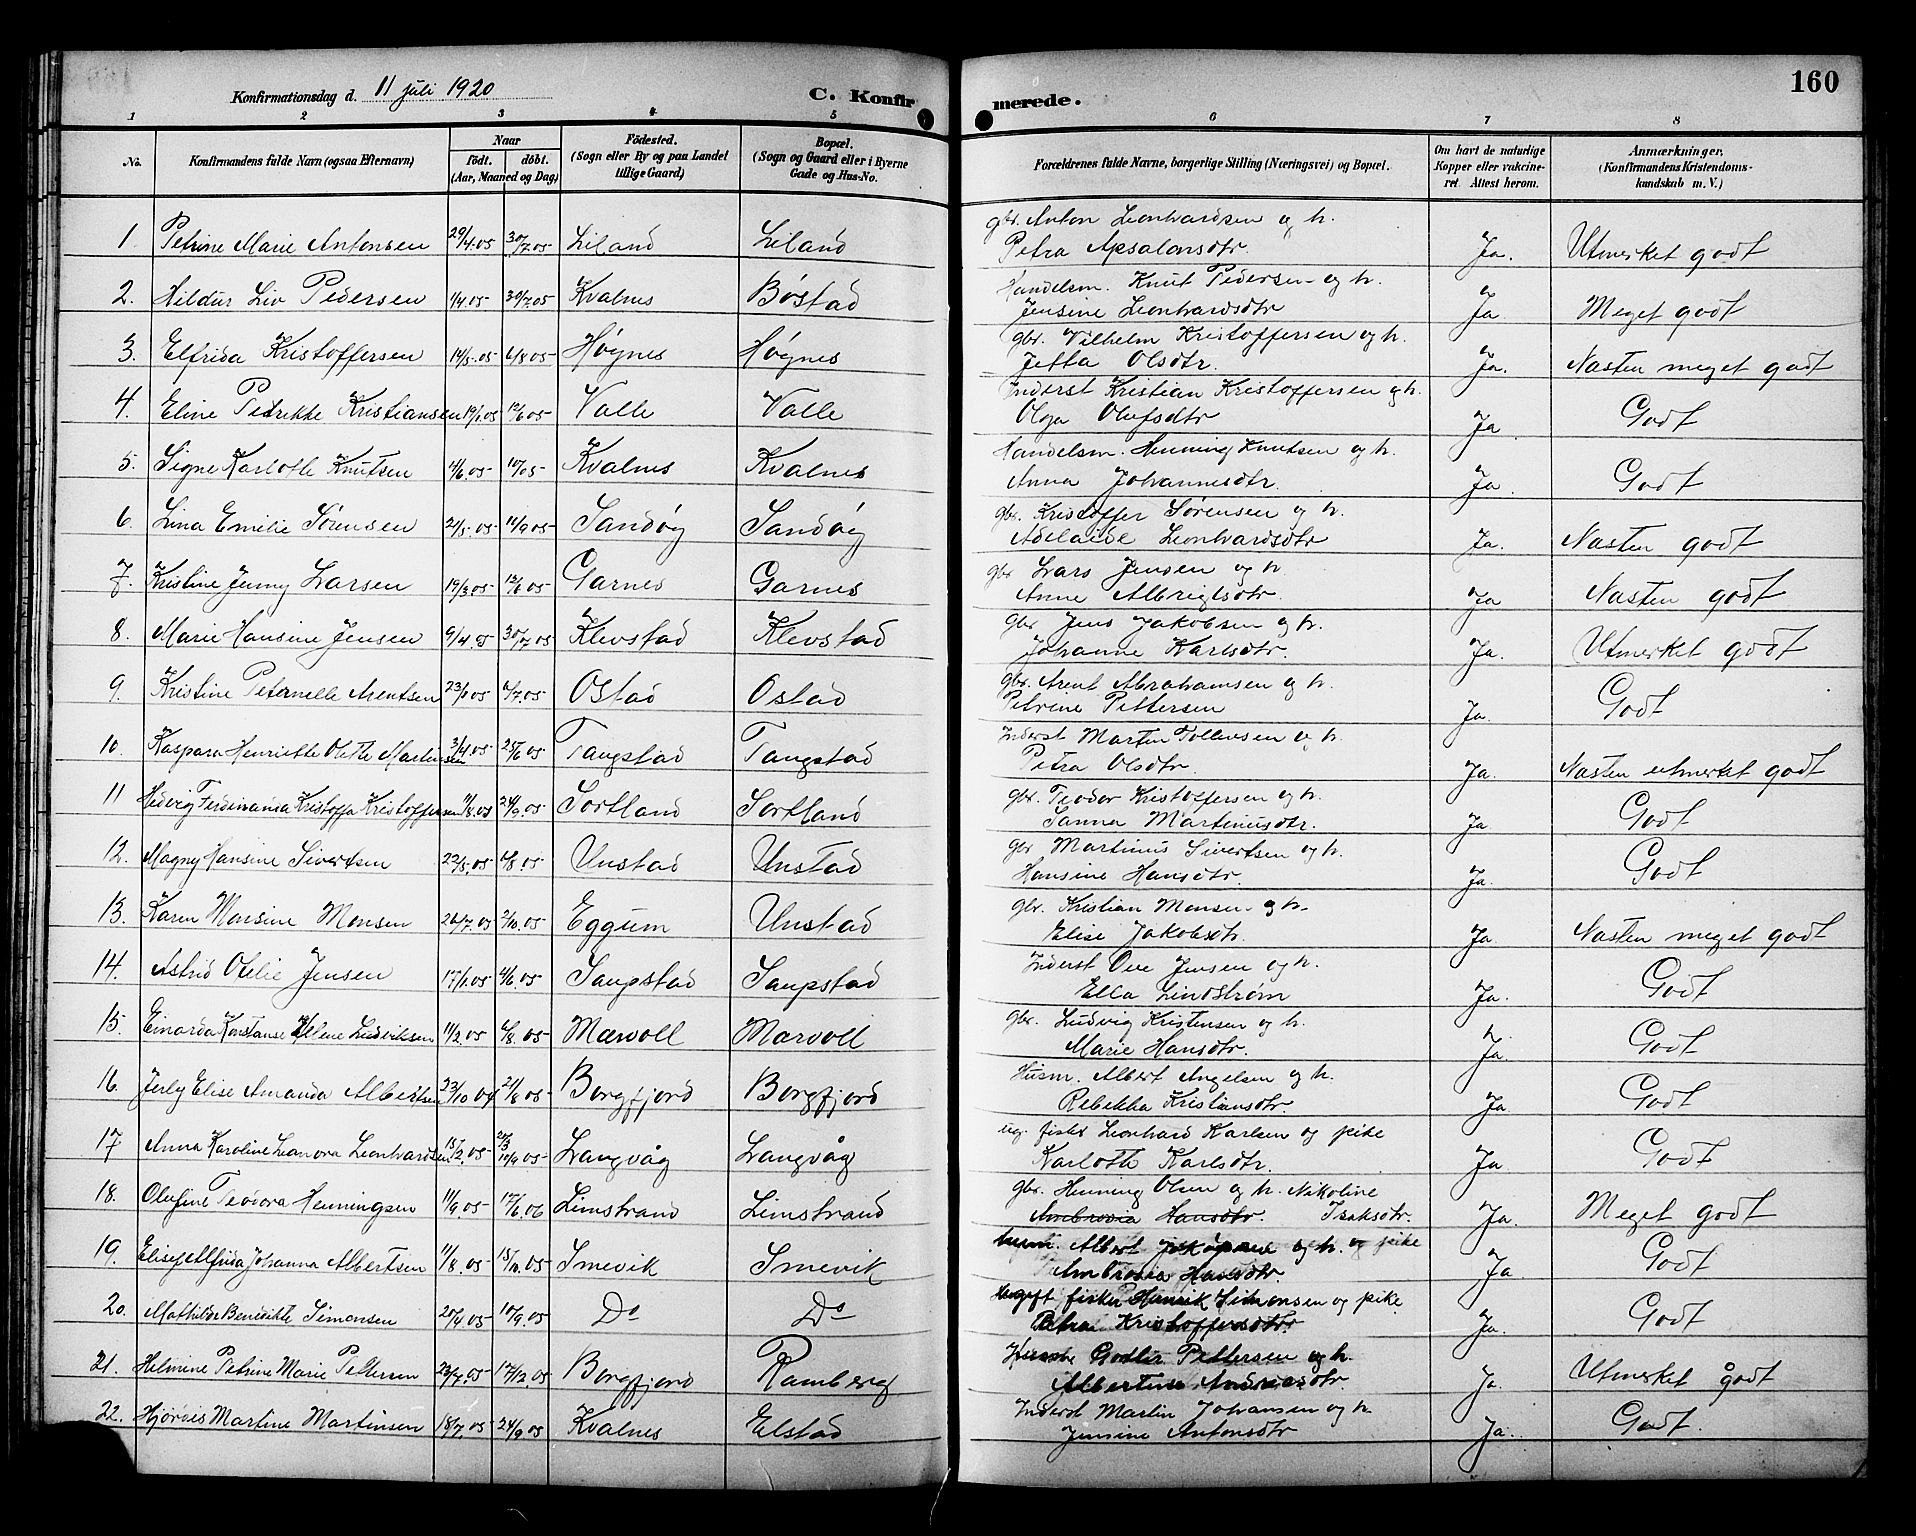 160
Konfirmationsdag d. 11 juli 1920
C. Konfir merede.
1 2 3 4 5 6 7 8
No.
Konfirmandens fulde Navn (ogsaa Efternavn)
Naar
födt. döbt.
(Aar, Maaned og Dag)
Födested.
(Sogn eller By og paa Landet
tillige Gaard)
Bopæl.
(Sogn og Gaard eller i Byerne
Gade og Hus-No.
Forældrenes fulde Navne, borgerlige Stilling (Næringsvei) og Bopæl.
Om havt de naturlige
Kopper eller vakcine-
ret. Attest herom.
Anmærkninger.
(Konfirmandens Kristendoms-
kundskab m. V.)
gbr. Anton Leonhardsen og h.
1. Petrine Marie Antonsen 29/4.05 30/7.05 Liland Liland Petra Apsalonsdtr. Ja. Utmerket godt
Handelsm. Knut Pedersen og h.
2. Hildur Liv Pedersen 1/4.05 30/7.05 Kvalnes Bøstad Jensine Leonhardsdtr Ja Meget godt
gbr. Vilhelm Kristoffersen og h.
3. Elfrida Kristoffersen 14/5.05 6/8.05 Høgnes Høgnes Jetta Olsdtr. Ja. Næsten meget godt
Inderst Kristian Kristoffersen og h.
4. Eline Petrikke Kristiansen 19/1.05 12/6.05 Valle Valle Olga Olufsdtr Ja Godt
Handelsm. Henning Knutsen og h.
5. Signe Karlotte Knutsen Kvalnes Kvalnes Anna Johannesdtr. Ja. Godt
gbr. Kristoffer Sørensen og h.
6. Lina Emilie Sørensen 21/5.05 Sandøy Sandøy Adelaide Leonhardsdtr Ja. Næsten godt
gbr Lars Jensen og h
7. Kristine Jenny Larsen 19/3.05 12/6.05 Garnes Garnes Anne Albrigtsdtr. Ja Næsten godt
gbr Jens Jakobsen og h.
8. Marie Hansine Jensen 9/4.05 30/7.05 Klevstad Klevstad Johanne Karlsdtr. Ja. Utmerket godt
gbr. Arent Abrahamsen og h.
9. Kristine Peternelle Arentsen 23/1.05 Ostad Ostad Petrine Pettersen Ja. Godt
Inderst Martin Tollevsen og h.
10. Kaspara Henriette Martinsen 3/4.05 25/6.05 Tangstad Tangstad Petra Olsdtr. Ja. Næsten utmerket godt
gbr. Teodor Kristoffersen og h.
11 Hedvig Ferdinanda Kristoffa Kristoffersen 24/9.05 Sortland Sortland Sanna Martinusdtr. Ja Godt
gbr Martinus Sivertsen og h.
12. Magny Hansine Sivertsen 22/5.05 Unstad Unstad Hansine Hansdtr. Ja. Godt
gbr. Kristian Monsen og h.
13. Karen Monsine Monsen 26/7.05 2/10.05 Eggum Unstad Elise Jakobsdtr. Ja. Næsten meget godt
Inderst Ove Jensen og h.
14. Astrid Otelie Jensen 17/1.05 Saupstad Saupstad Ella Lindstrøm Ja. Godt
gbr. Ludvig Kristensen og h.
15. Einarda Konstanse Helene Ludviksen 11/2.05 6/8.05 Mærvoll Mærvoll Marie Hansdtr. Ja Godt
Husm. Albert Angelsen og h.
16. Jerly Elise Amanda Albertsen 23/10 04 Borgfjord Borgfjord Rebekka Kristiansdtr. Ja Godt
ug. fisker Leonhard Karlsen og pike
17 Anna Karoline Leanora Leonhardsen 15/2.05 10/9 05 Langvåg Langvåg Karlotte Karlsdtr. Ja Godt
gbr. Henning Olsen og h. Nikoline
18. Olufine Teodora Henningsen 11/9.05 17/6.06 Limstrand Limstrand Ambrosia Hansdtr. Isaksdtr. Ja. Meget godt
Albert og h. og pike
19. Alfrida Johanna Albertsen 11/8.05 15/10.05 Smevik Smevik Ambrosia Hansdtr. Ja Godt
fisker Henrik Simonsen og pike
20. Mathilde Benedikte Simonsen 20/4.05 10/9.05 Do Do Petra Kristoffersdtr. Ja. Godt
Pettersen og h.
21. Helmine Petrine Marie Pettersen 17/12.05 Borgfjord Ramberg Albertine Andreasdtr. Ja. Utmerket godt
Inderst Martin Johansen og h
22. Hjørdis Martine Martinsen 24/9.05 Kvalnes Elstad Jensine Antonsdtr Ja. Godt.